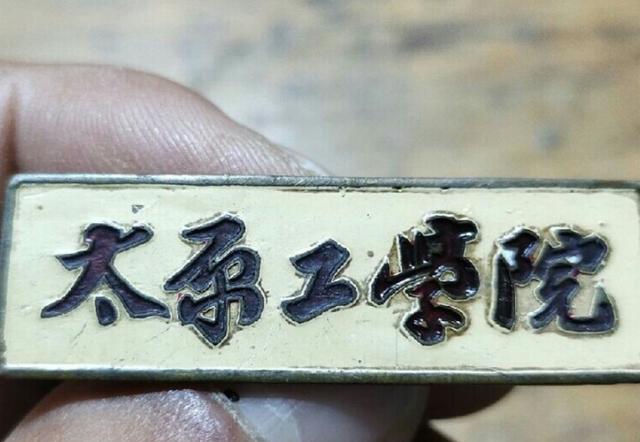 太原工學院